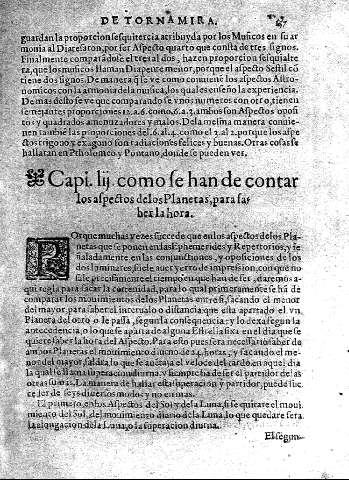 DE TORNAMIRA.
guardan la proporcion sesquitercia atribuyda por los Musicos en su ar
monia al Diatesaron, por ser Aspecto quarto que consta de tres signos.
Finalmente comparādose el tres al dos, hazen proporcion sesquialte
ra, que los musicos llaman Diapente menor, porque el aspecto Sestil cō
tiene dos signos. De manera q̃ se ve como convienen los aspectos Astro
nomicos con la armonia de la musica, los quales enseño la experiencia.
De mas desto se ve que comparando se vnos numeros con otro, tienen
semejantes proporciones
opositos y quadrados amenazadores y malos. De la mesma manera convie-
nen tambiē las proporciones del .6. al .4. como el 3. al 2. porque los aspe
ctos trigono y exagono son radiaciones felices y buenas. Otras cosas se
hallaran en Ptholomeo y Pontano, donde se pueden ver.
Capi. iij. como se han de contar
los aspectos de los Planetas, para sa-
ber la hora.
POrque muchas vezes succede que en los aspectos de los Pla
netas que se ponen en las Ephemerides y Repertorios, y se
ñaladamente en las conjunctiones, y oposiciones de los
dos luminares, suele auer yerro de impression, con que no
se sabe precissamente el tiempo en que han de ser, daremos a
qui regla para sacar la certenidad, para lo qual primeramente se hā
de comparar los mouimientos de los Planetas entre si, sacando el menor
del mayor, para saber el interualo o distancia que esta apartado el vn
Planeta del otro o le passa, segun la consequencia: y lo dexa segun la
antecedencia, o lo que se aparta de alguna Estrella fixa en el dia que se
quiere saber la hora del Aspecto. Para esto pues sera necessario saber de
ambos Planetas el mouimiento diurno de 24. horas, y sacando el me-
nor del mayor, saldra lo que se auētaja el veloce del tardo en aquel dia
la qual se llama superacion diurna, y siempre ha de ser el partidor de las
otras sumas. La manera de hallar esta superacion y partidor, puede suc
ceder de seys diuersos modos y no en mas.
El primero, en los Aspectos del Sol y de la Luna, si se quitare el moui
miento del Sol, del mouimiento diario de la Luna, lo que quedare sera
la elongacion de la Luna, o la superacion diurna.
El segun-